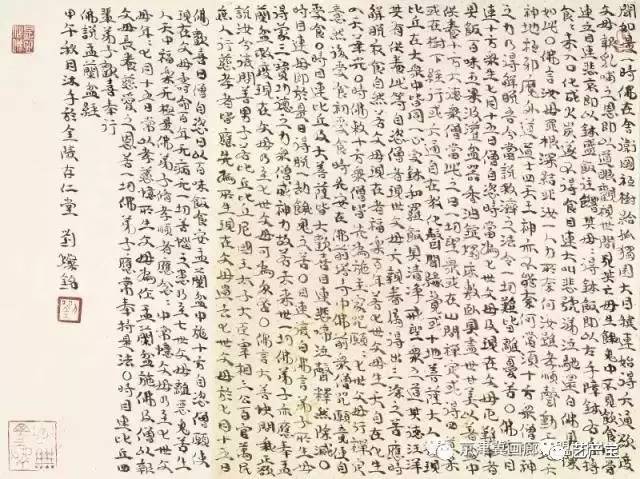 聞如是一時佛在舍衛國祇樹給孤獨園大目犍連始得六通欲度
父母報乳哺之恩即以道眼觀視世間見其亡母生餓鬼中不見飲食皮骨
連立目連悲哀即以鉢盛飯往餉其母母得鉢飯即以左手障鉢右手摶
食食未入口化成火炭遂不得食目連大叫悲號涕泣馳還白佛具陳
如此〇佛言汝母罪根深結非汝一人力所奈何汝雖孝順聲動天地天神
神地祇邪魔外道道士四天王神亦不能奈何當須十方眾僧威神
之力乃得解脫吾今當說救濟之法令一切難皆離憂苦〇佛告目
連十方眾生七月十五日僧自恣時當為七世父母及現在父母厄難中者
具飯百味五果汲灌盆器香油錠燭床敷臥具盡世甘美以著盆中
供養十方大德眾僧當此之日一切聖眾或在山間禪定或得四道果
或在樹下經行或六通自在教化聲聞緣覺或十地菩薩大人權現
比丘在大眾中皆同一心受鉢和羅飯具清淨戒聖眾之道其德汪洋
其有供養此等自恣僧者現世父母六親眷屬得出三塗之苦應時
解脫衣食自然若父母現在者福樂百年若七世父母生天自在化生
入天華光〇時佛敕十方眾僧皆先為施主家咒願七世父母行禪定
意然後受食初受食時先安在佛前塔寺中佛前眾僧咒願竟便自
受食〇時目連比丘及大菩薩皆大歡喜目連悲啼泣聲釋然除滅〇
時目連母即於是日得脫一劫餓鬼之苦〇目連復白佛言弟子所生母
得蒙三寶功德之力眾僧威神力故若未來世一切佛弟子亦應奉盂
蘭盆救度現在父母乃至七世父母可為爾否〇佛言大善快問我正欲
說汝今復問善男子若比丘比丘尼國王太子大臣宰相三公百官萬民
庶人行慈孝者皆應先為所生現在父母過去七世父母於七月十五日
佛歡喜日僧自恣日以百味飲食安盂蘭盆中施十方自恣僧願使
現在父母壽命百年無病無一切苦惱之患乃至七世父母離惡鬼苦生
人天中福樂無極是佛弟子修孝順者應念念中常憶父母乃至七世
父母年年七月十五日常以孝慈憶所生父母為作盂蘭盆施佛及僧以報
父母長養慈愛之恩若一切佛弟子應當奉持是法〇時目連比丘四
輩弟子歡喜奉行
佛說盂蘭盆經
甲午秋月沐手於金陵存仁堂 劉燦銘
劉
京津冀画廊
艺产宝